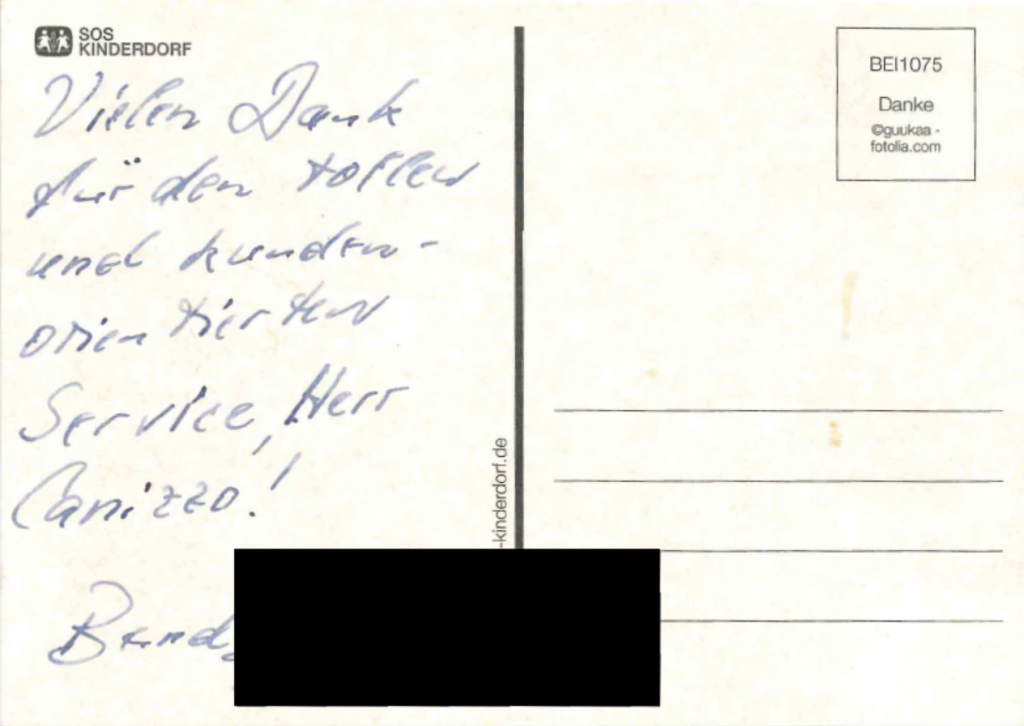 SOS
KINDERDORF
Vielen Dank
für den tollen
und kunden-
orientierten
Service, Herr
Canizzo!
BEI1075
Danke
©guukaa -
fotolia.com
-kinderdorf.de